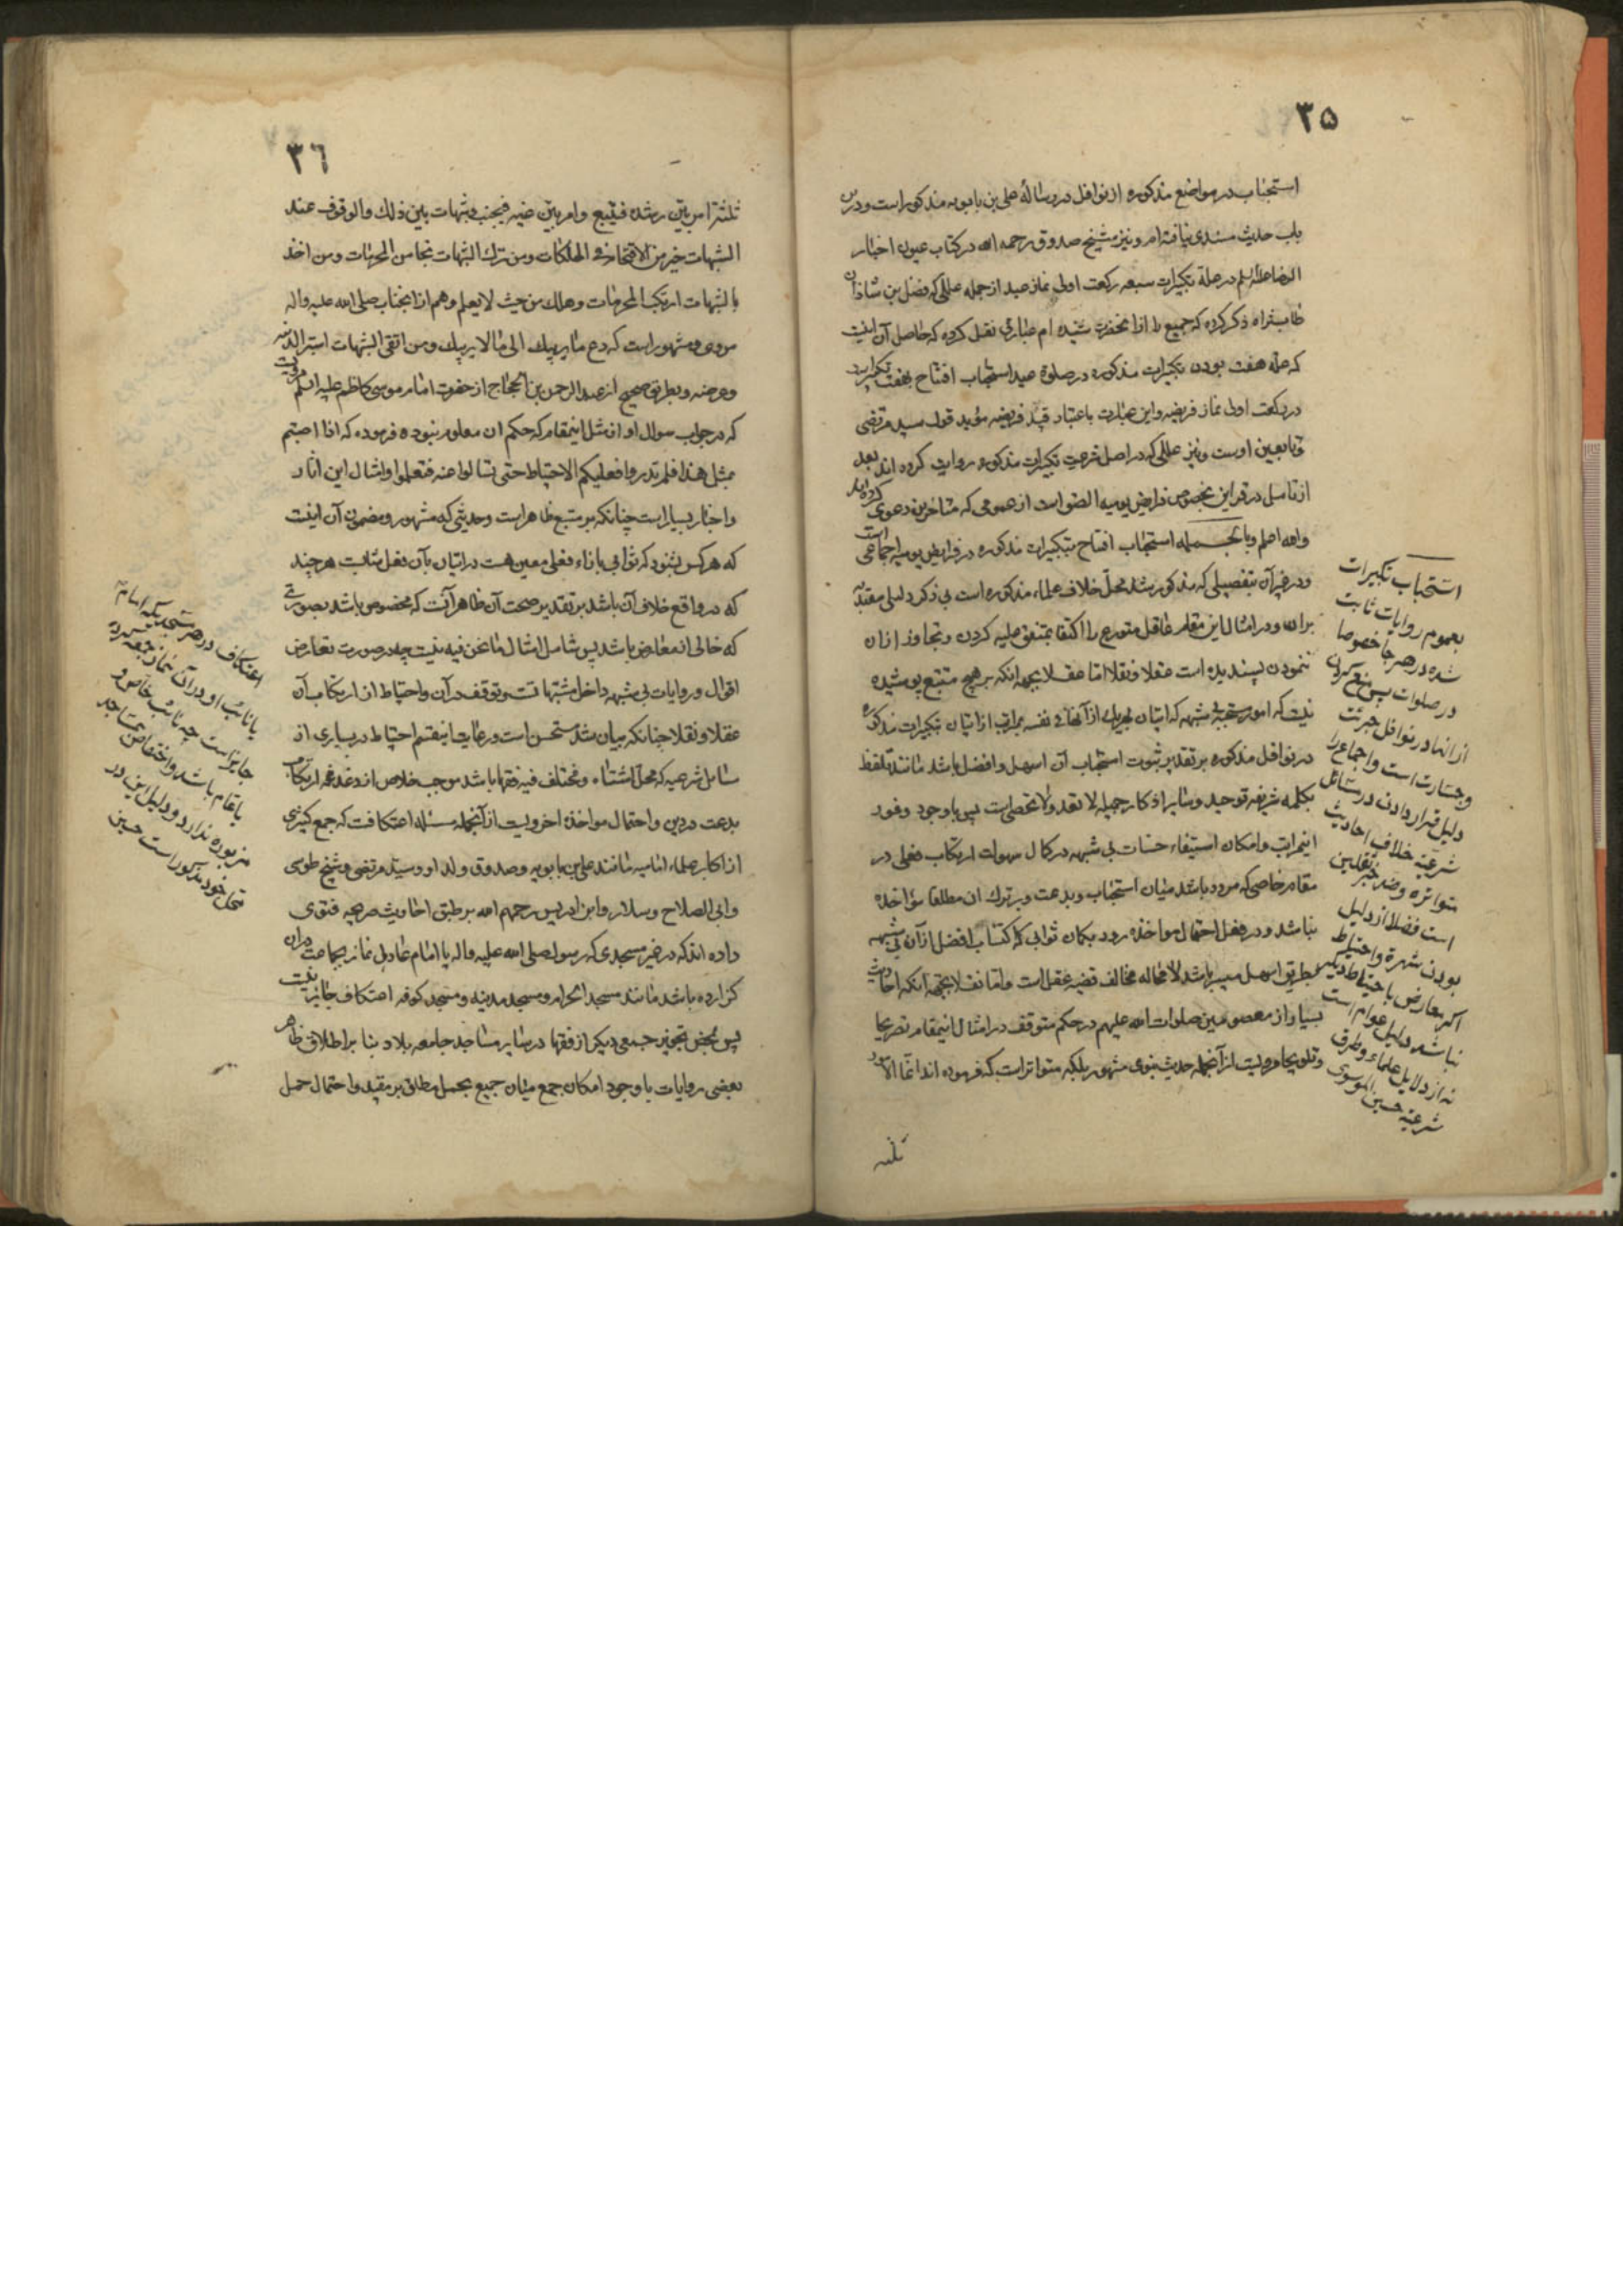 ۳۵
استحباب در مواضع مذکوره از نوافل در رسالهٔ علی بن بابویه مذکور است و درین
باب حدیث مسندی نیافته‌ام و نیز شیخ صدوق رحمه الله در کتاب عیون اخبار
الرضا علیه السلم در علة تکبیرات سبعه رکعت اولی نماز عید از جمله عللی که فضل بن شاذان
طاب ثراه ذکر کرده که جمیع را از آنحضرت شنیده‌ام عبارتی نقل کرده که حاصل آن اینست
که علة هفت بودن تکبیرات مذکوره در صلوة عید استحباب افتتاح بهفت تکبیر است
در رکعت اولی نماز فریضه و این عبارت باعتبار قید فریضه مؤید قول سید مرتضی
و تابعین اوست و نیز عللی که در اصل شرعیت تکبیرات مذکوره روایت کرده اند بعد
از تامل در قراین بخصوص فرایض یومیه الصق است از عمومی که متاخرین دعوی کرده‌اند
والله اعلم وبالجمله استحباب افتتاح بتکبیرات مذکوره در فرایض یومیه اجماعی است
و در غیر آن بتفصیلی که مذکور شد محل خلاف علماء مذکوره است بی ذکر دلیلی معتدبه
بران و در امثال این مقام عاقل متورع را اکتفا بمتفق علیه کردن و تجاوز از ان
ننمودن پسندیده است عقلا و نقلا اما عقلا بجهة انکه بر هیچ متتبع پوشیده
نیست که امور مستحبهٔ بی شبهه که اتیان بهریک از آنها فی نفسه بمراتب از اتیان تکبیرات مذکوره
در نوافل مذکوره بر تقدیر ثبوت استحباب آن اسهل و افضل باشد مانند تلفظ
بکلمه شریفه توحید و سایر اذکار جمیله لا تعد ولا تحصی است پس با وجود وفور
اینمراتب و امکان استیفاء حسنات بی شبهه در کمال سهولت ارتکاب فعلی در
مقام خاصی که مردد باشد میان استحباب و بدعت و بر ترک ان مطلقا مؤاخذه
نباشد و در فعل احتمال مواخذه رود بکمان ثوابی که اکتساب افضل از آن بی شبهه
بطریق اسهل میسر باشد لا محاله مخالف قضیه عقل است و اما نقلا بجهة آنکه احادیث
بسیار از معصومین صلوات الله علیهم در حکم متوقف در امثال اینمقام تصریحا
و تلویحا مرویست از آنجمله حدیث نبوی مشهور بلکه متواتر است که فرموده اند انما الامور
ثلثه
استحباب تکبیرات
بعموم روایات ثابت
شده در هر جا خصوصا
در صلوات پس منع کردن
از انها در نوافل جرئت
و جسارت است و اجماع را
دلیل قرار دادن در مسائل
شرعیه خلاف احادیث
متواتره و ضد خبر ثقلین
است فضلا از دلیل
بودن شهرة و احتیاط
اکر معارض با حیتاط دیکر
نباشد دلیل عوام است
نه از دلایل علماء و طرق
شرعیه حسین الموسوی
۳٦
ثلثة امر بیّن رشده فیتبع وامر بیّن غیه فیجتنب وشبهات بین ذلك والوقوف عند
الشبهات خیر من الاقتحام فی الهلکات ومن ترك الشبهات نجا من المحرمات ومن اخذ
بالشبهات ارتکب المحرمات وهلك من حیث لایعلم وهم از انجناب صلی الله علیه واله
مروی و مشهور است که دع ما یریبك الی ما لا یریبك ومن اتقی الشبهات استبرا لدینه
وعرضه و بطریق صحیح از عبد الرحمن بن الحجاج از حضرت امام موسی کاظم علیه السلم مرویست
که در جواب سوال او از مثل اینمقام که حکم ان معلوم نبوده فرموده که اذا اصبتم
بمثل هذا فلم تدروا فعلیکم الاحتیاط حتی تسالوا عنه فتعلموا و امثال این اثار
واخبار بسیار است چنانکه بر متتبع ظاهر است و حدیثی که مشهور و مضمون آن اینست
که هر کس بشنود که ثوابی بازاء فعلی معین هست در اتیان بآن فعل مثابست هرچند
که در واقع خلاف آن باشد بر تقدیر صحت آن ظاهر آنست که مخصوص باشد بصورتی
که خالی از معارض باشد پس شامل امثال ما نحن فیه نیست چه در صورت تعارض
اقوال و روایات بی شبهه داخل مشتبهات است و توقف در آن و احتیاط از ارتکاب آن
عقلا و نقلا چنانکه بیان شد مستحسن است و رعایت اینقسم احتیاط در بسیاری از
مسایل شرعیه که محل اشتباه و مختلف فیه فقها باشد موجب خلاص از دغدغه ارتکاب
بدعت در دین و احتمال مواخذه اخرویست از آنجمله مسئله اعتکافست که جمع کثیری
از اکابر علماء امامیه مانند علی بن بابویه و صدوق ولد او و سید مرتضی و شیخ طوسی
و ابی الصلاح و سلار و ابن ادریس رحمهم الله بر طبق احادیث صریحه فتوی
داده اند که در غیر مسجدی که رسول صلی الله علیه واله یا امام عادل نماز بجماعت دران
کزارده باشد مانند مسجد الحرام و مسجد مدینه و مسجد کوفه اعتکاف جایز نیست
پس بمحض تجویز جمعی دیکر از فقها در سایر مساجد جامعه بلاد بنا بر اطلاق ظاهر
بعضی روایات با وجود امکان جمع میان جمیع بحمل مطلق بر مقید و احتمال حمل
اعتکاف در هر مسجدیکه امام
یا نایب او در آن نماز جمعه کرده
جایز است چه نائب خاص و
یا عام باشد و اختصاص بمساجد
مزبوره ندارد و دلیل این در
محل خود مذکور است حسین